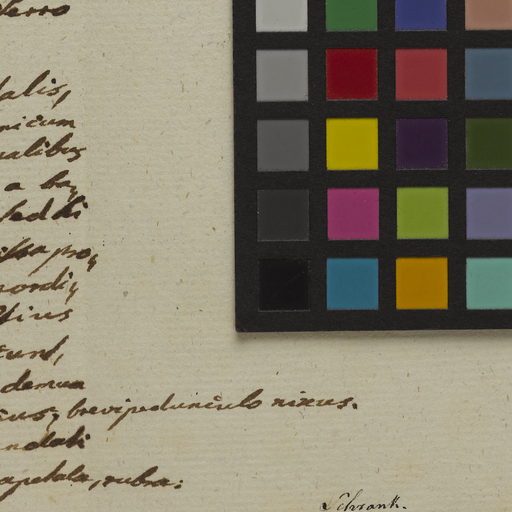 ferro
talis,
nicum
nalibus
a ba,
sed hi
issa pro,
mordi,
stius
tunt,
demum
cus, brevi pedunculo nixus.
ndati
apetala, rubra:
Schrank.